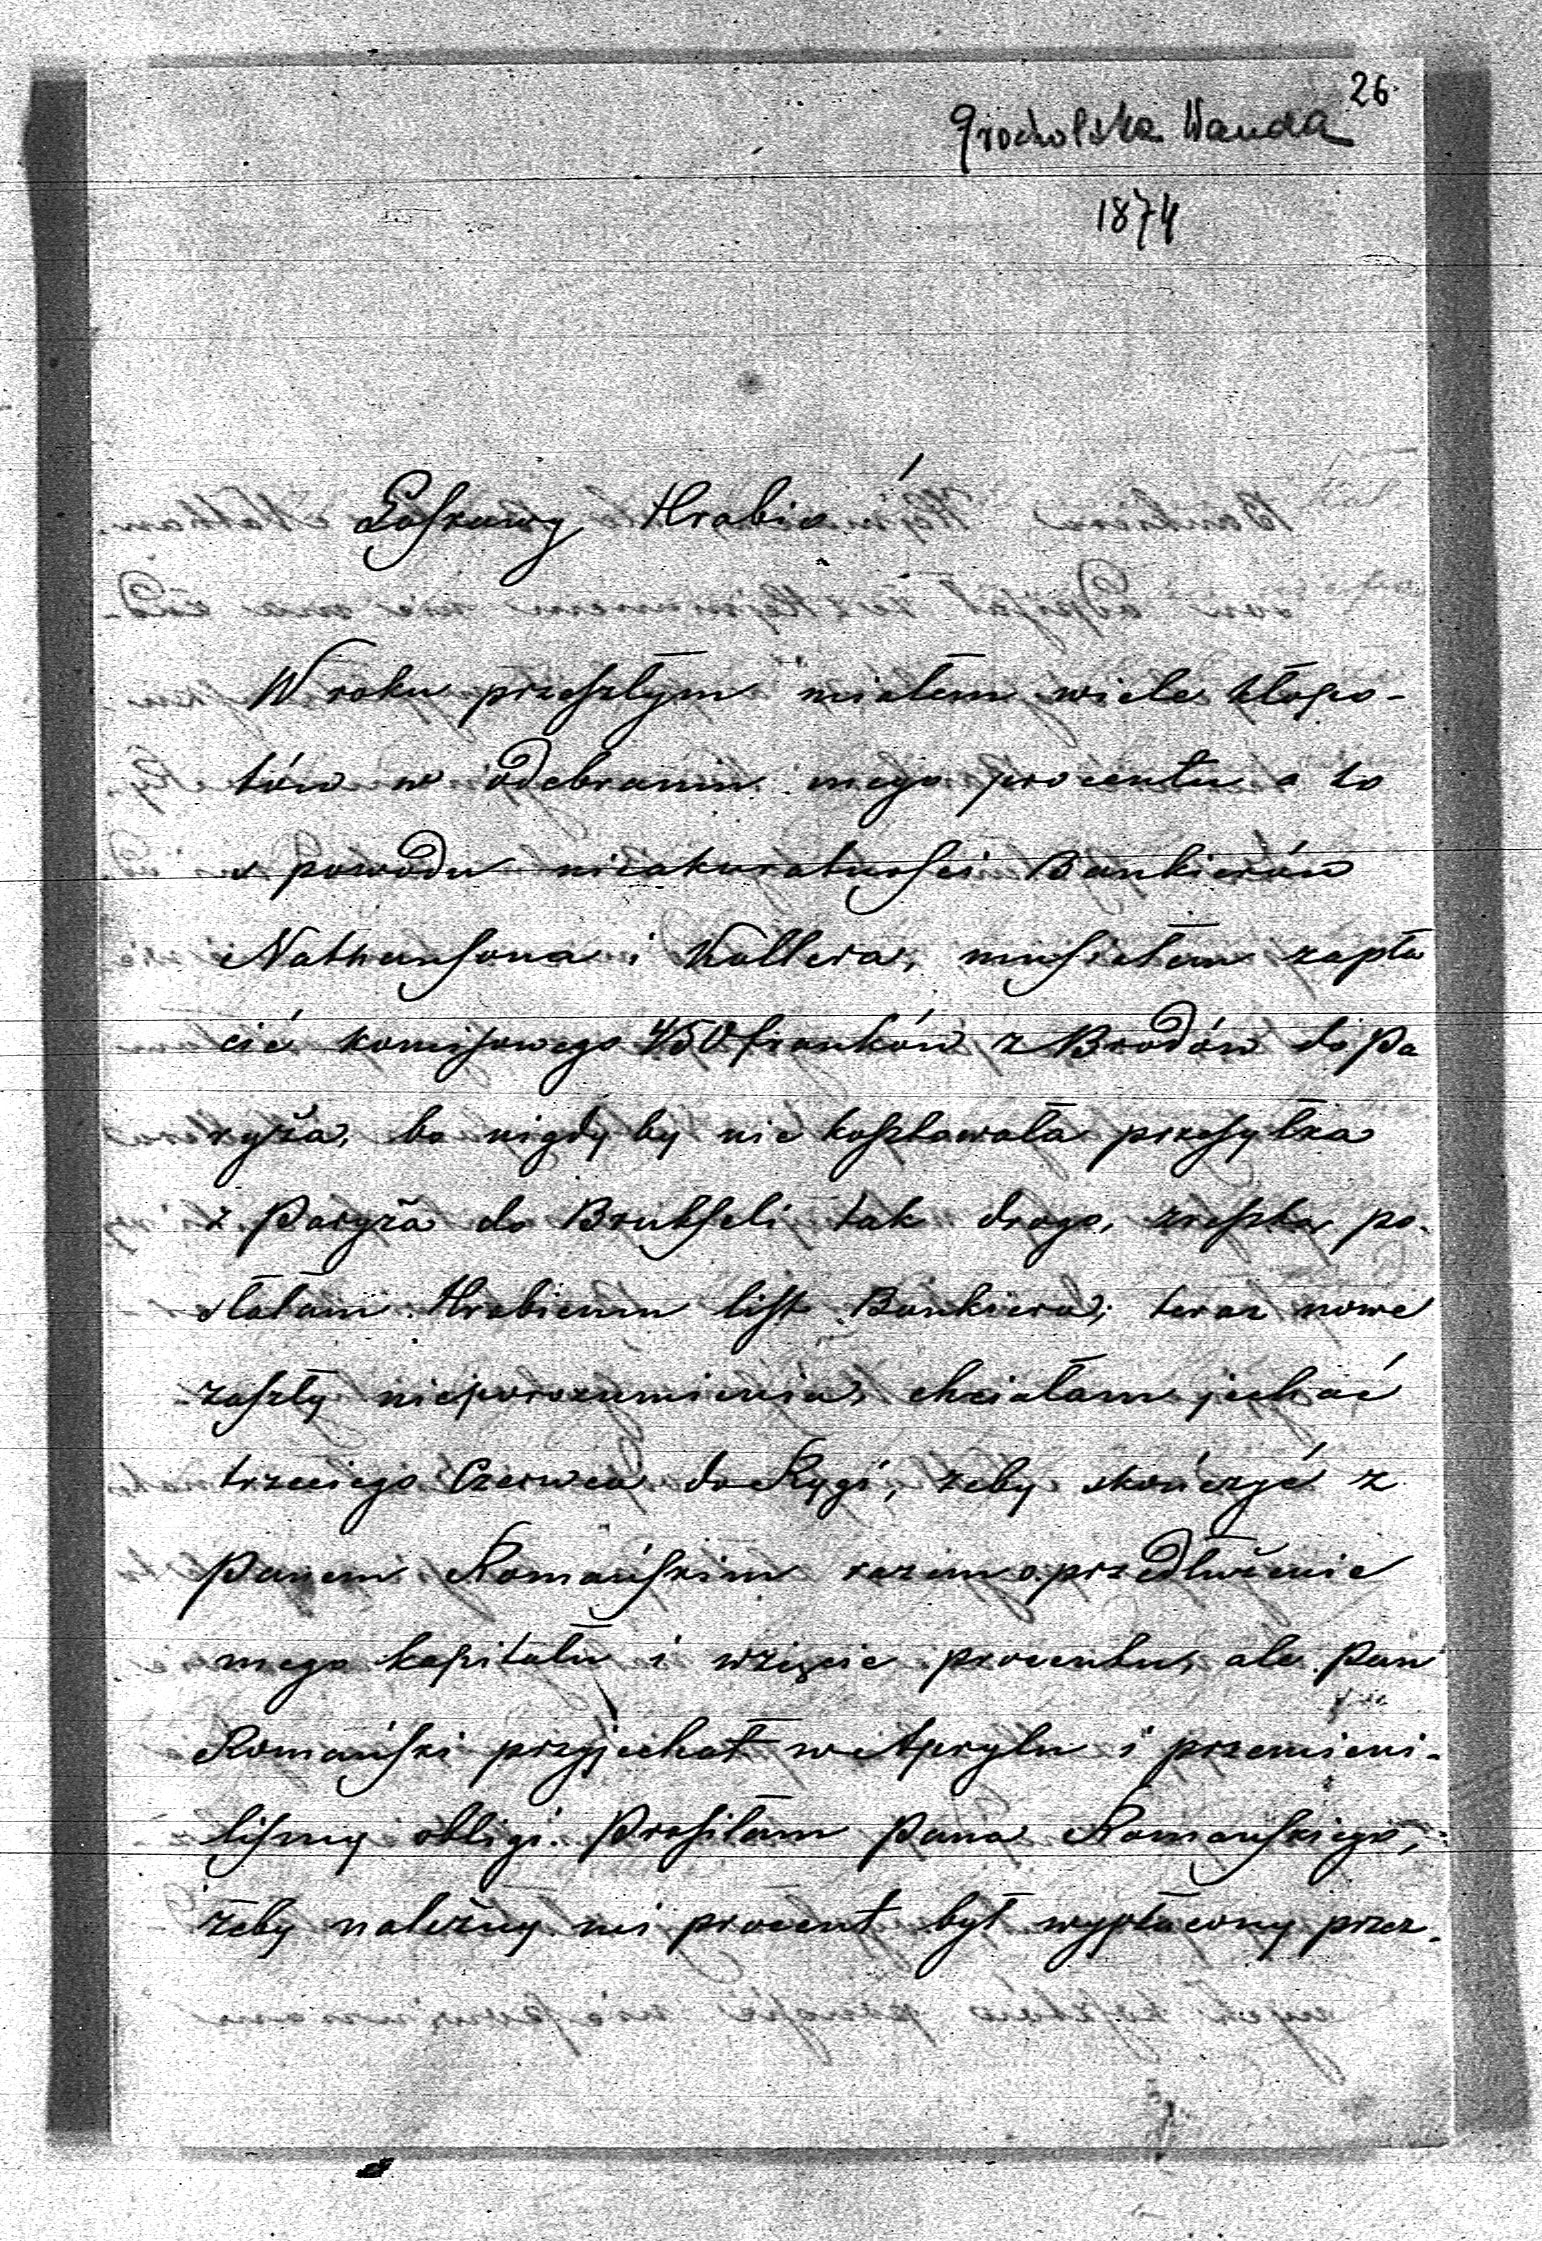 26.
Grocholska Wanda
1874
Łaskawy Hrabio!
W roku przeszłym miałam wiele kłopo-
tów w odebraniu mego procentu a to
z powodu nieakuratności Bankierów
Nathansona i Kallera, musiałam zapła
cić komisowego 450 franków z Brodów do Pa
ryża, bo nigdy by nie kosztowała przesyłka
z Paryża do Brukseli tak drogo, zresztą po-
słałam Hrabiemu list Bankiera; teraz nowe
zaszły nieporozumienia, chciałam jechać
trzeciego Czerwca do Rygi, żeby skończyć z
Panem Romańskim razem o przedłużenie
mego kapitału i wzięcie procentu, ale Pan
Romański przyjechał w Aprylu i przemieni-
liśmy obligi. Prosiłam Pana Romańskiego,
żeby należny mi procent był wypłacony przez